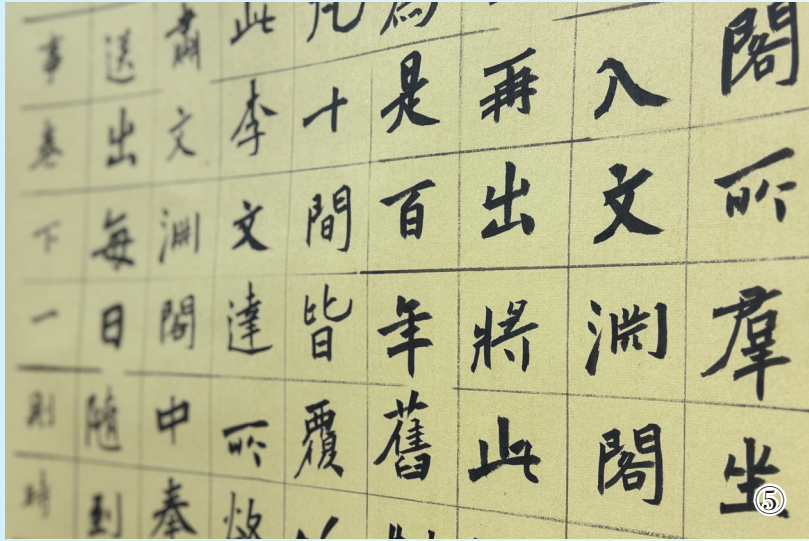 閣所羣坐
入文淵閣
再出將此
為是百年舊
凡十間皆覆
此李文達所
肅文淵閣中奉
送出每日隨到
事卷下一則時
⑤